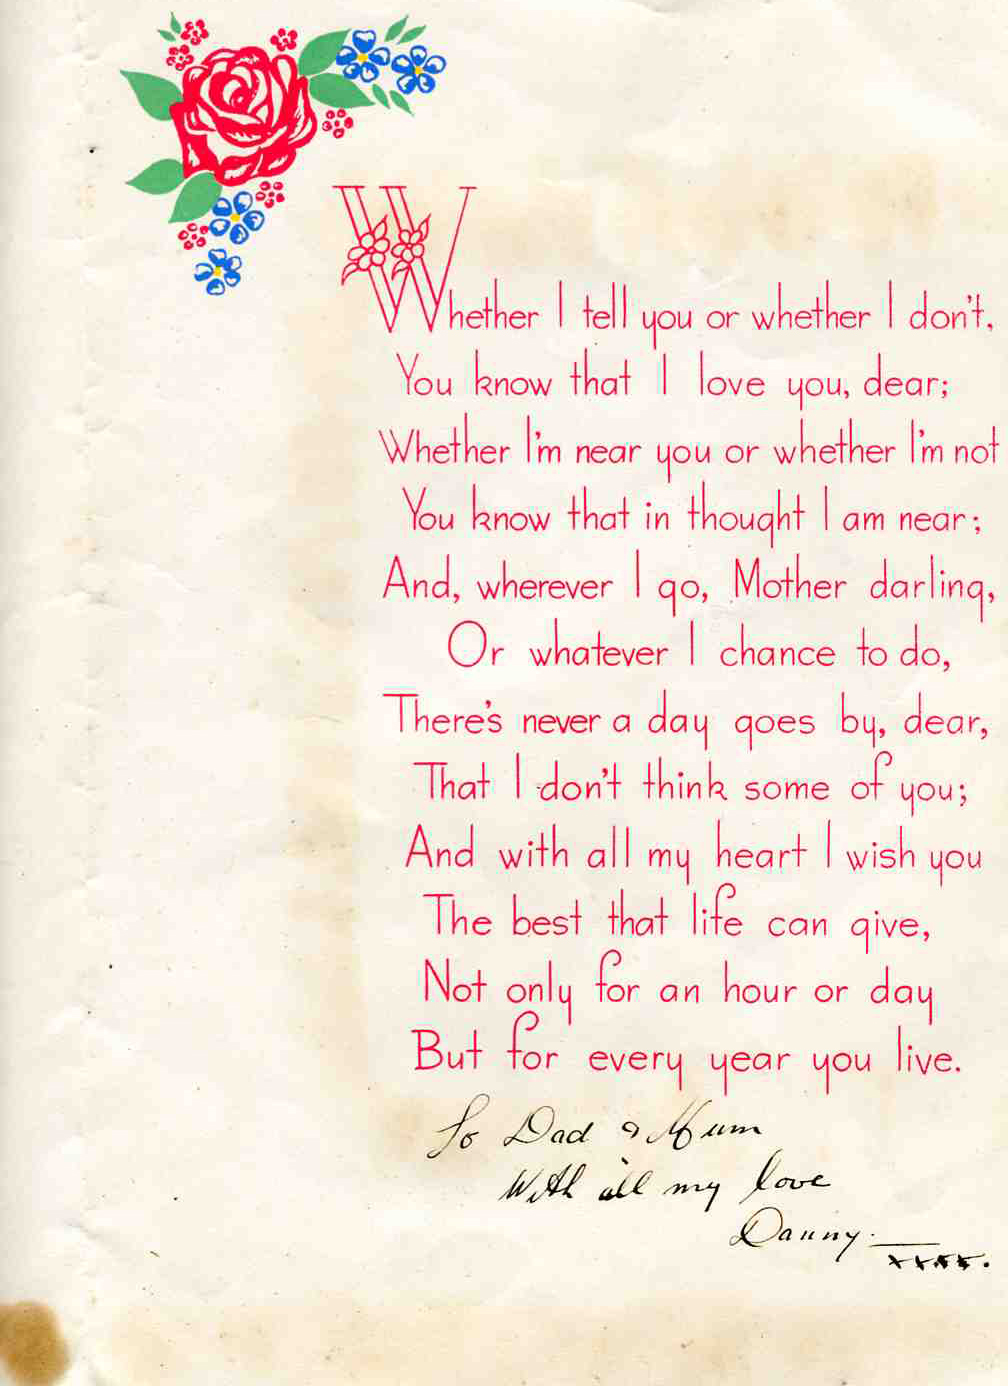 Whether I tell you or whether I don't,
You know that I love you, dear;
Whether I'm near you or whether I'm not
You know that in thought I am near;
And, wherever I go, Mother darling,
Or whatever I chance to do,
There's never a day goes by, dear,
That I don't think some of you;
And with all my heart I wish you
The best that life can give,
Not only for an hour or day
But for every year you live.
To Dad & Mum
With all my love
Danny.
xxxx.